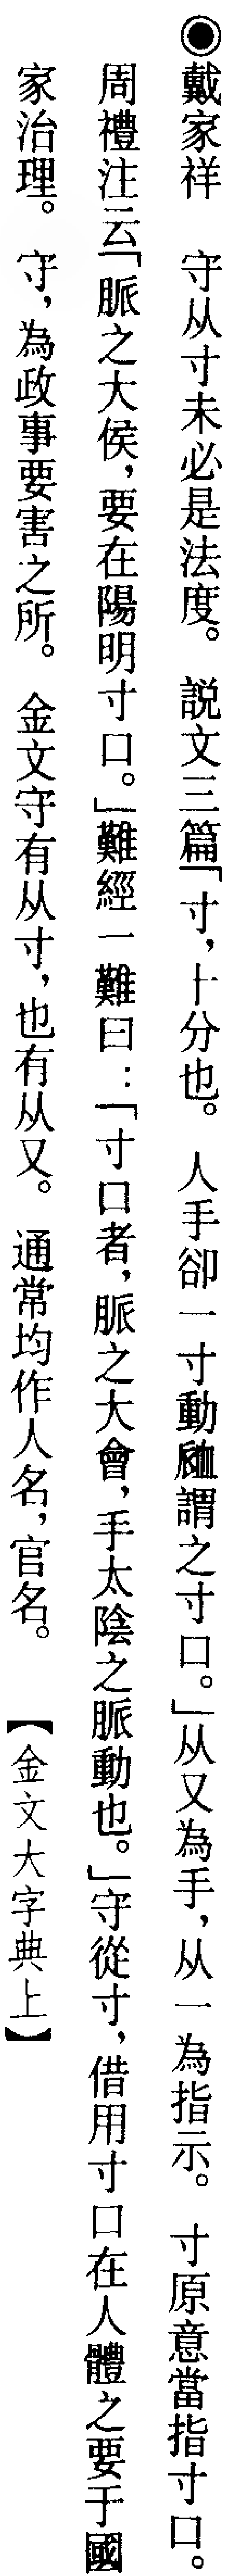 ◉戴家祥　守从寸未必是法度。　説文三篇「寸，十分也。　人手卻一寸動𧖴謂之寸口。」从又為手，从一為指示。　寸原意當指寸口。
周禮注云「脈之大侯，要在陽明寸口。」難經一難曰：「寸口者，脈之大會，手太陰之脈動也。」守從寸，借用寸口在人體之要于國
家治理。　守，為政事要害之所。　金文守有从寸，也有从又。　通常均作人名，官名。　【金文大字典上】